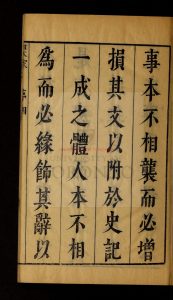 事本不相襲而必增
損其文以附於史記
一成之體人本不相
爲而必緣飾其辭以